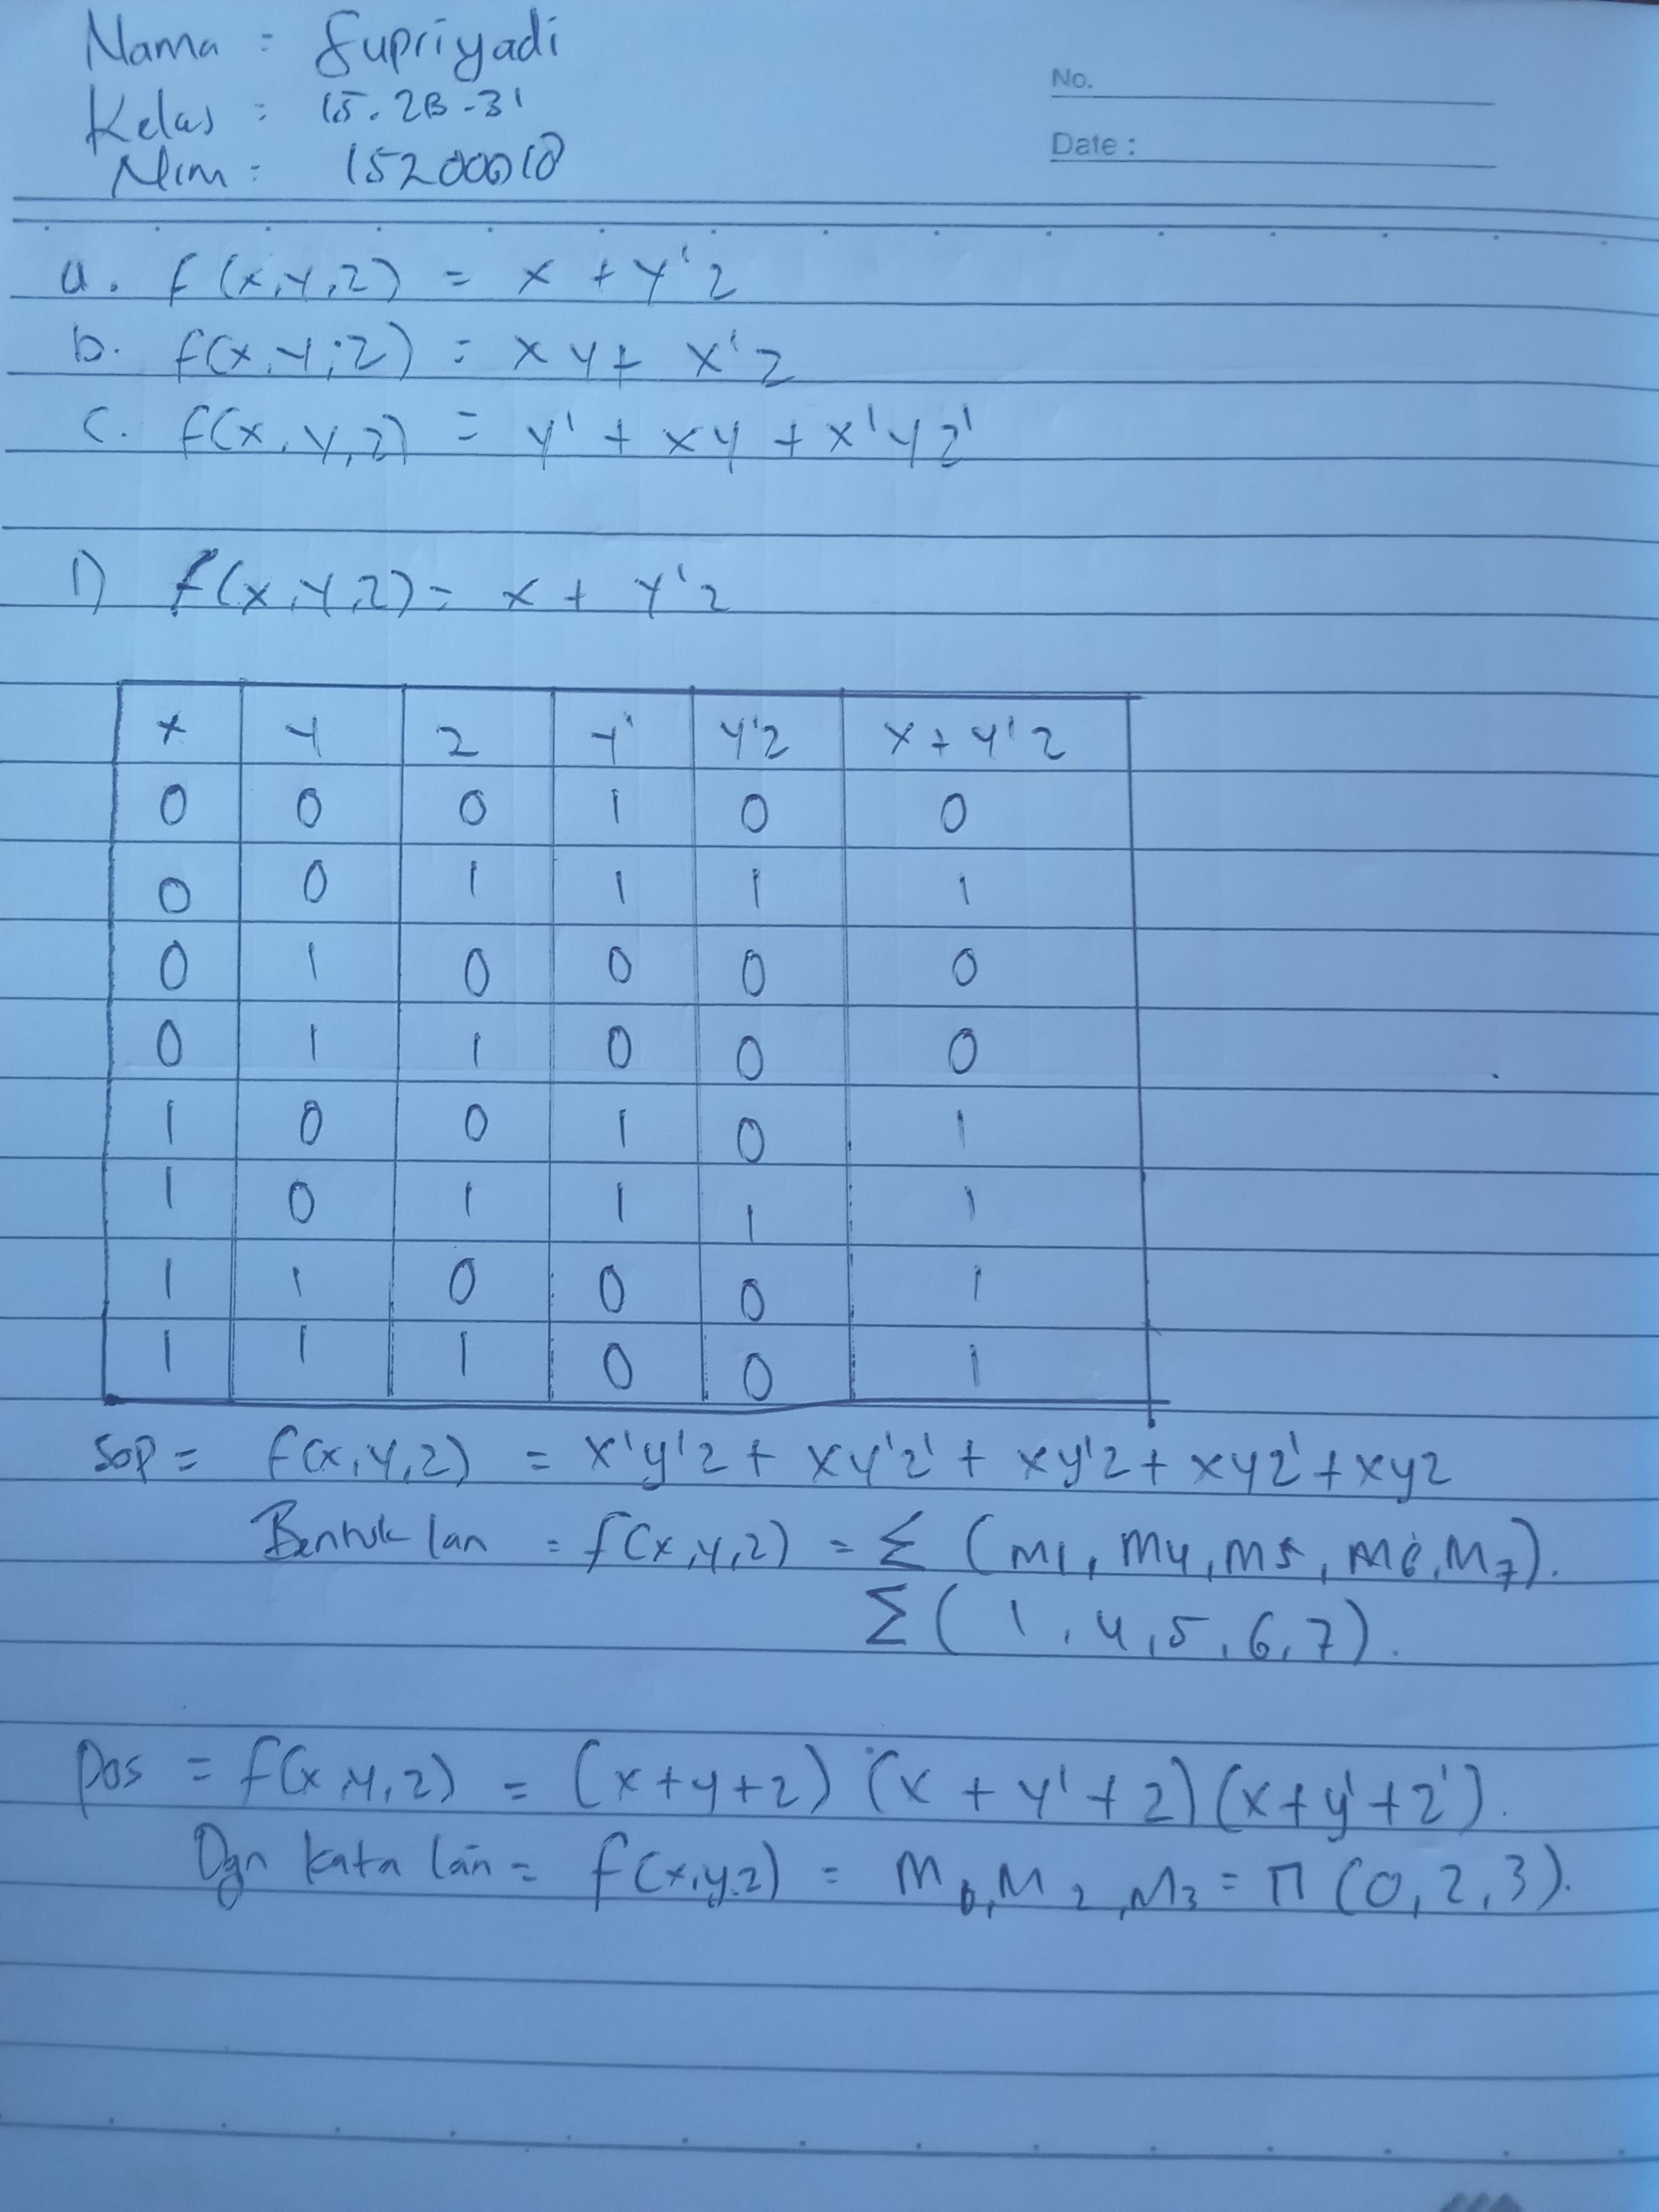 Nama : Supriyadi
Kelas : 15.2B-31
Nim : 15200018
No.
Date :
a. f(x,y,z) = x + y'z
b. f(x,y,z) = xy + x'z
c. f(x,y,z) = y' + xy + x'yz'
1) f(x,y,z) = x + y'z
x y z y' y'z x + y'z
0 0 0 1 0 0
0 0 1 1 1 1
0 1 0 0 0 0
0 1 1 0 0 0
1 0 0 1 0 1
1 0 1 1 1 1
1 1 0 0 0 1
1 1 1 0 0 1
SOP = f(x,y,z) = x'y'z + xy'z' + xy'z + xyz' + xyz
Bentuk lan = f(x,y,z) = Σ (m1, m4, m5, m6, m7).
Σ ( 1, 4, 5, 6, 7 ).
Pos = f(x,y,z) = (x+y+z) (x + y' + z) (x+y'+z').
Dgn kata lan = f(x,y,z) = M0, M2, M3 = Π (0, 2, 3).